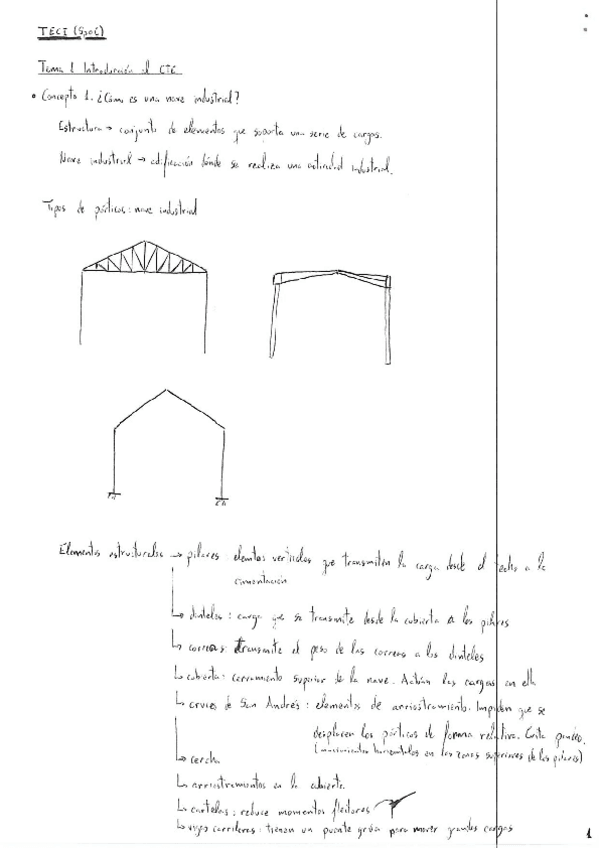 TECI (SPOC)
Tema 1 Introducción al CTE
• Concepto 1. ¿Cómo es una nave industrial?
Estructura → conjunto de elementos que soporta una serie de cargas.
Nave industrial → edificación dónde se realiza una actividad industrial.
Tipos de pórticos: nave industrial
Elementos estructurales → pilares: elemntos verticales que transmiten la carga desde el techo a la
cimentación
↳ dinteles: carga que se transmite desde la cubierta a los pilares
↳ correas: transmite el peso de las correas a los dinteles
↳ cubierta: cerramiento superior de la nave. Actúan las cargas en ella
↳ cruces de San Andrés: elementos de arriostramiento. Impiden que se
desplacen los pórticos de forma relativa. Evita
(movimientos horizontales en las zonas superiores de los pilares)
↳ cercha
↳ arriostramientos en la cubierta
↳ cartelas: reduce momentos flectores
↳ vigas carrileras: tienen un puente grúa para mover grandes cargas
1